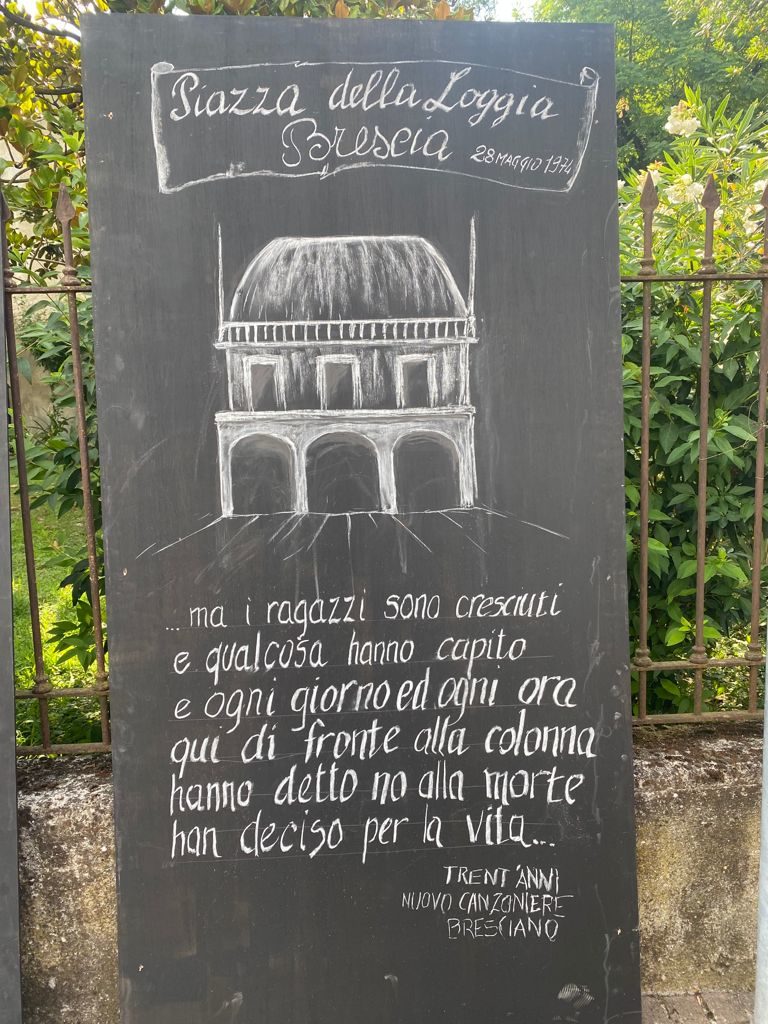 Piazza della Loggia
Brescia 28 MAGGIO 1974
...ma i ragazzi sono cresciuti
e qualcosa hanno capito
e ogni giorno ed ogni ora
qui di fronte alla colonna
hanno detto no alla morte
han deciso per la vita...
TRENT'ANNI
NUOVO CANZONIERE
BRESCIANO